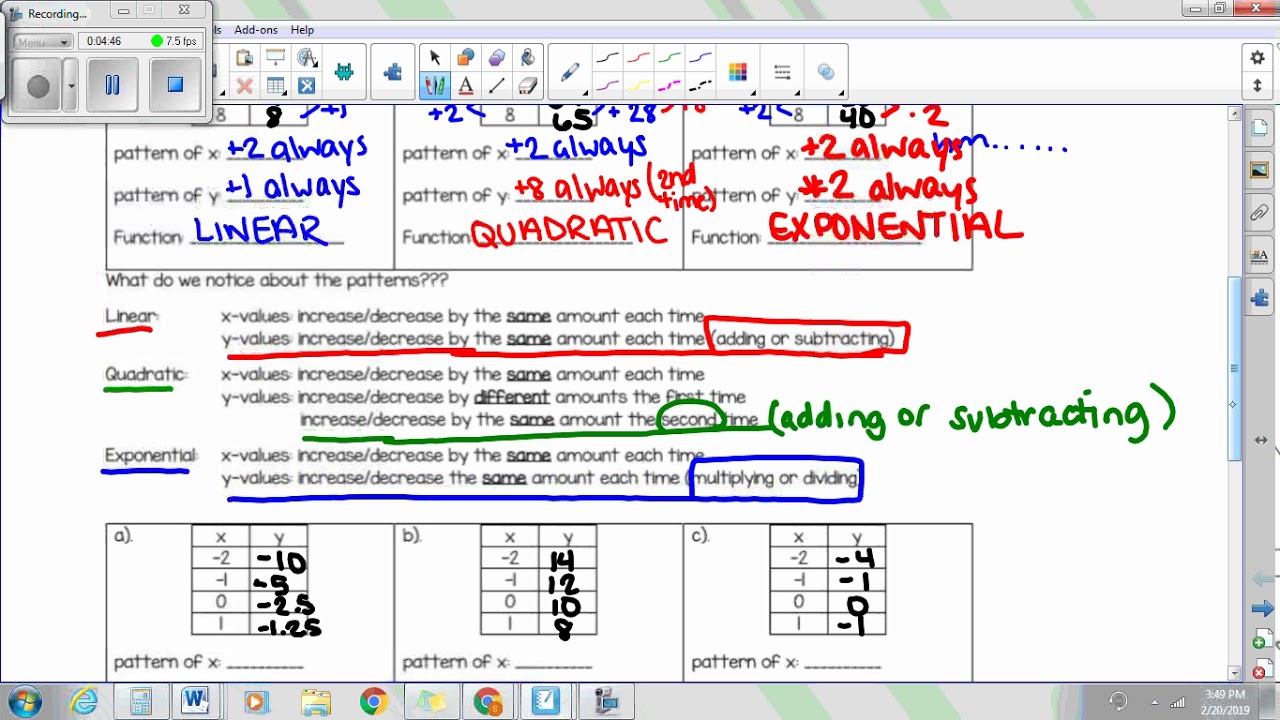 Recording...
Menu
0:04:46 7.5 fps
Add-ons Help
8 8 +1
+2 8 65 +28
+2 8 40 · 2
pattern of x: +2 always
pattern of x: +2 always
pattern of x: +2 always hm......
pattern of y: +1 always
pattern of y: +8 always (2nd time)
pattern of y: *2 always
Function: LINEAR
Function: QUADRATIC
Function: EXPONENTIAL
What do we notice about the patterns???
Linear: x-values: increase/decrease by the same amount each time
y-values: increase/decrease by the same amount each time (adding or subtracting)
Quadratic: x-values: increase/decrease by the same amount each time
y-values: increase/decrease by different amounts the first time
increase/decrease by the same amount the second time (adding or subtracting)
Exponential: x-values: increase/decrease by the same amount each time
y-values: increase/decrease the same amount each time (multiplying or dividing)
a).
x y
-2 -10
-1 -5
0 -2.5
1 -1.25
pattern of x:
b).
x y
-2 14
-1 12
0 10
1 8
pattern of x:
c).
x y
-2 -4
-1 -1
0 0
1 -1
pattern of x:
3:49 PM
2/20/2019